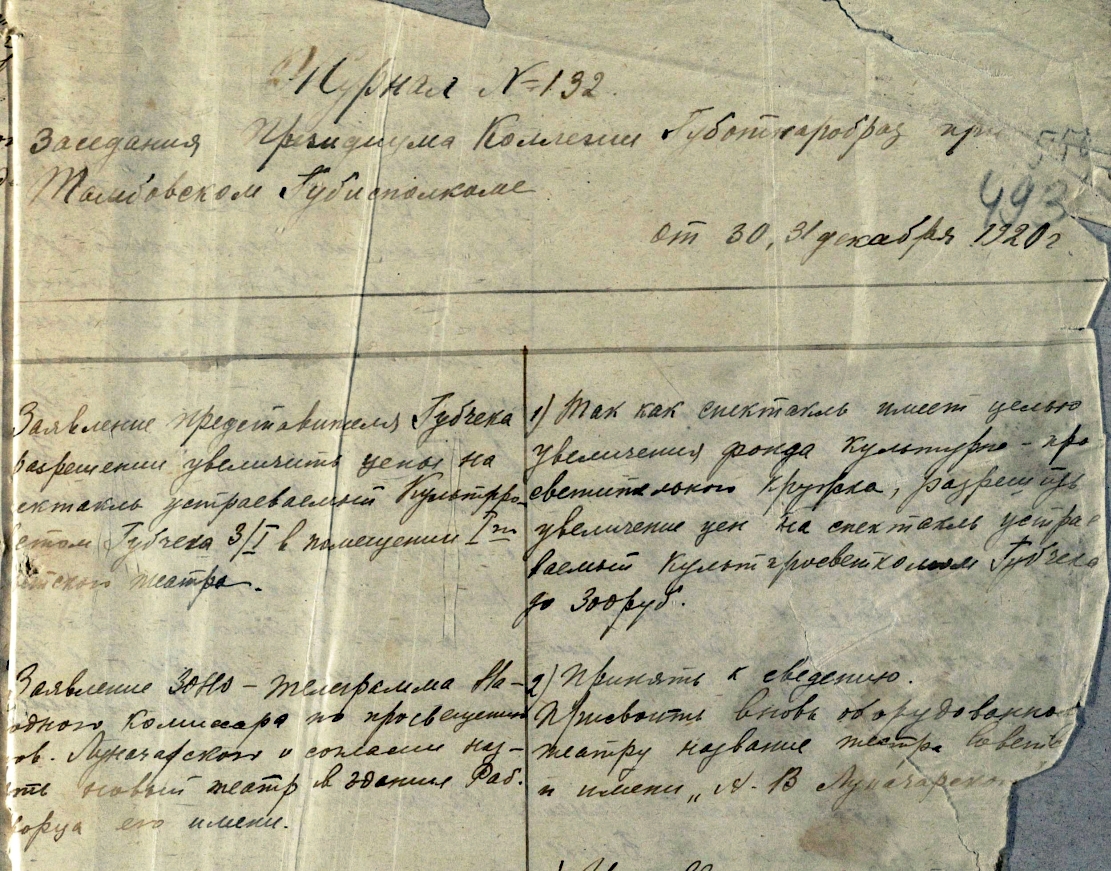 Журнал №132.
Заседания Президиума Коллегии Губотнаробраз при
Тамбовском Губисполкоме
493
от 30, 31 декабря 1920 г.
Заявление представителя Губчека
разрешении увеличить цены на
ектакль устраеваемый Культпро-
етом Губчека 3/I в помещении I го
етского театра.
1) Так как спектакль имеет целью
увеличения фонда культурно-про
светительного кружка, разрешить
увеличение цен на спектакль устрае
ваемый Культпросветкомом Губчека
до 300 руб.
Заявление ЗОНО - телеграмма На-
одного комиссара по просвещению
тов. Луначарского о согласии наз-
ать новый театр в здании Раб.
ворца его имени.
2) Принять к сведению.
Присвоить вновь оборудованном
театру название театра Советс
и имени „А. В Луначарског